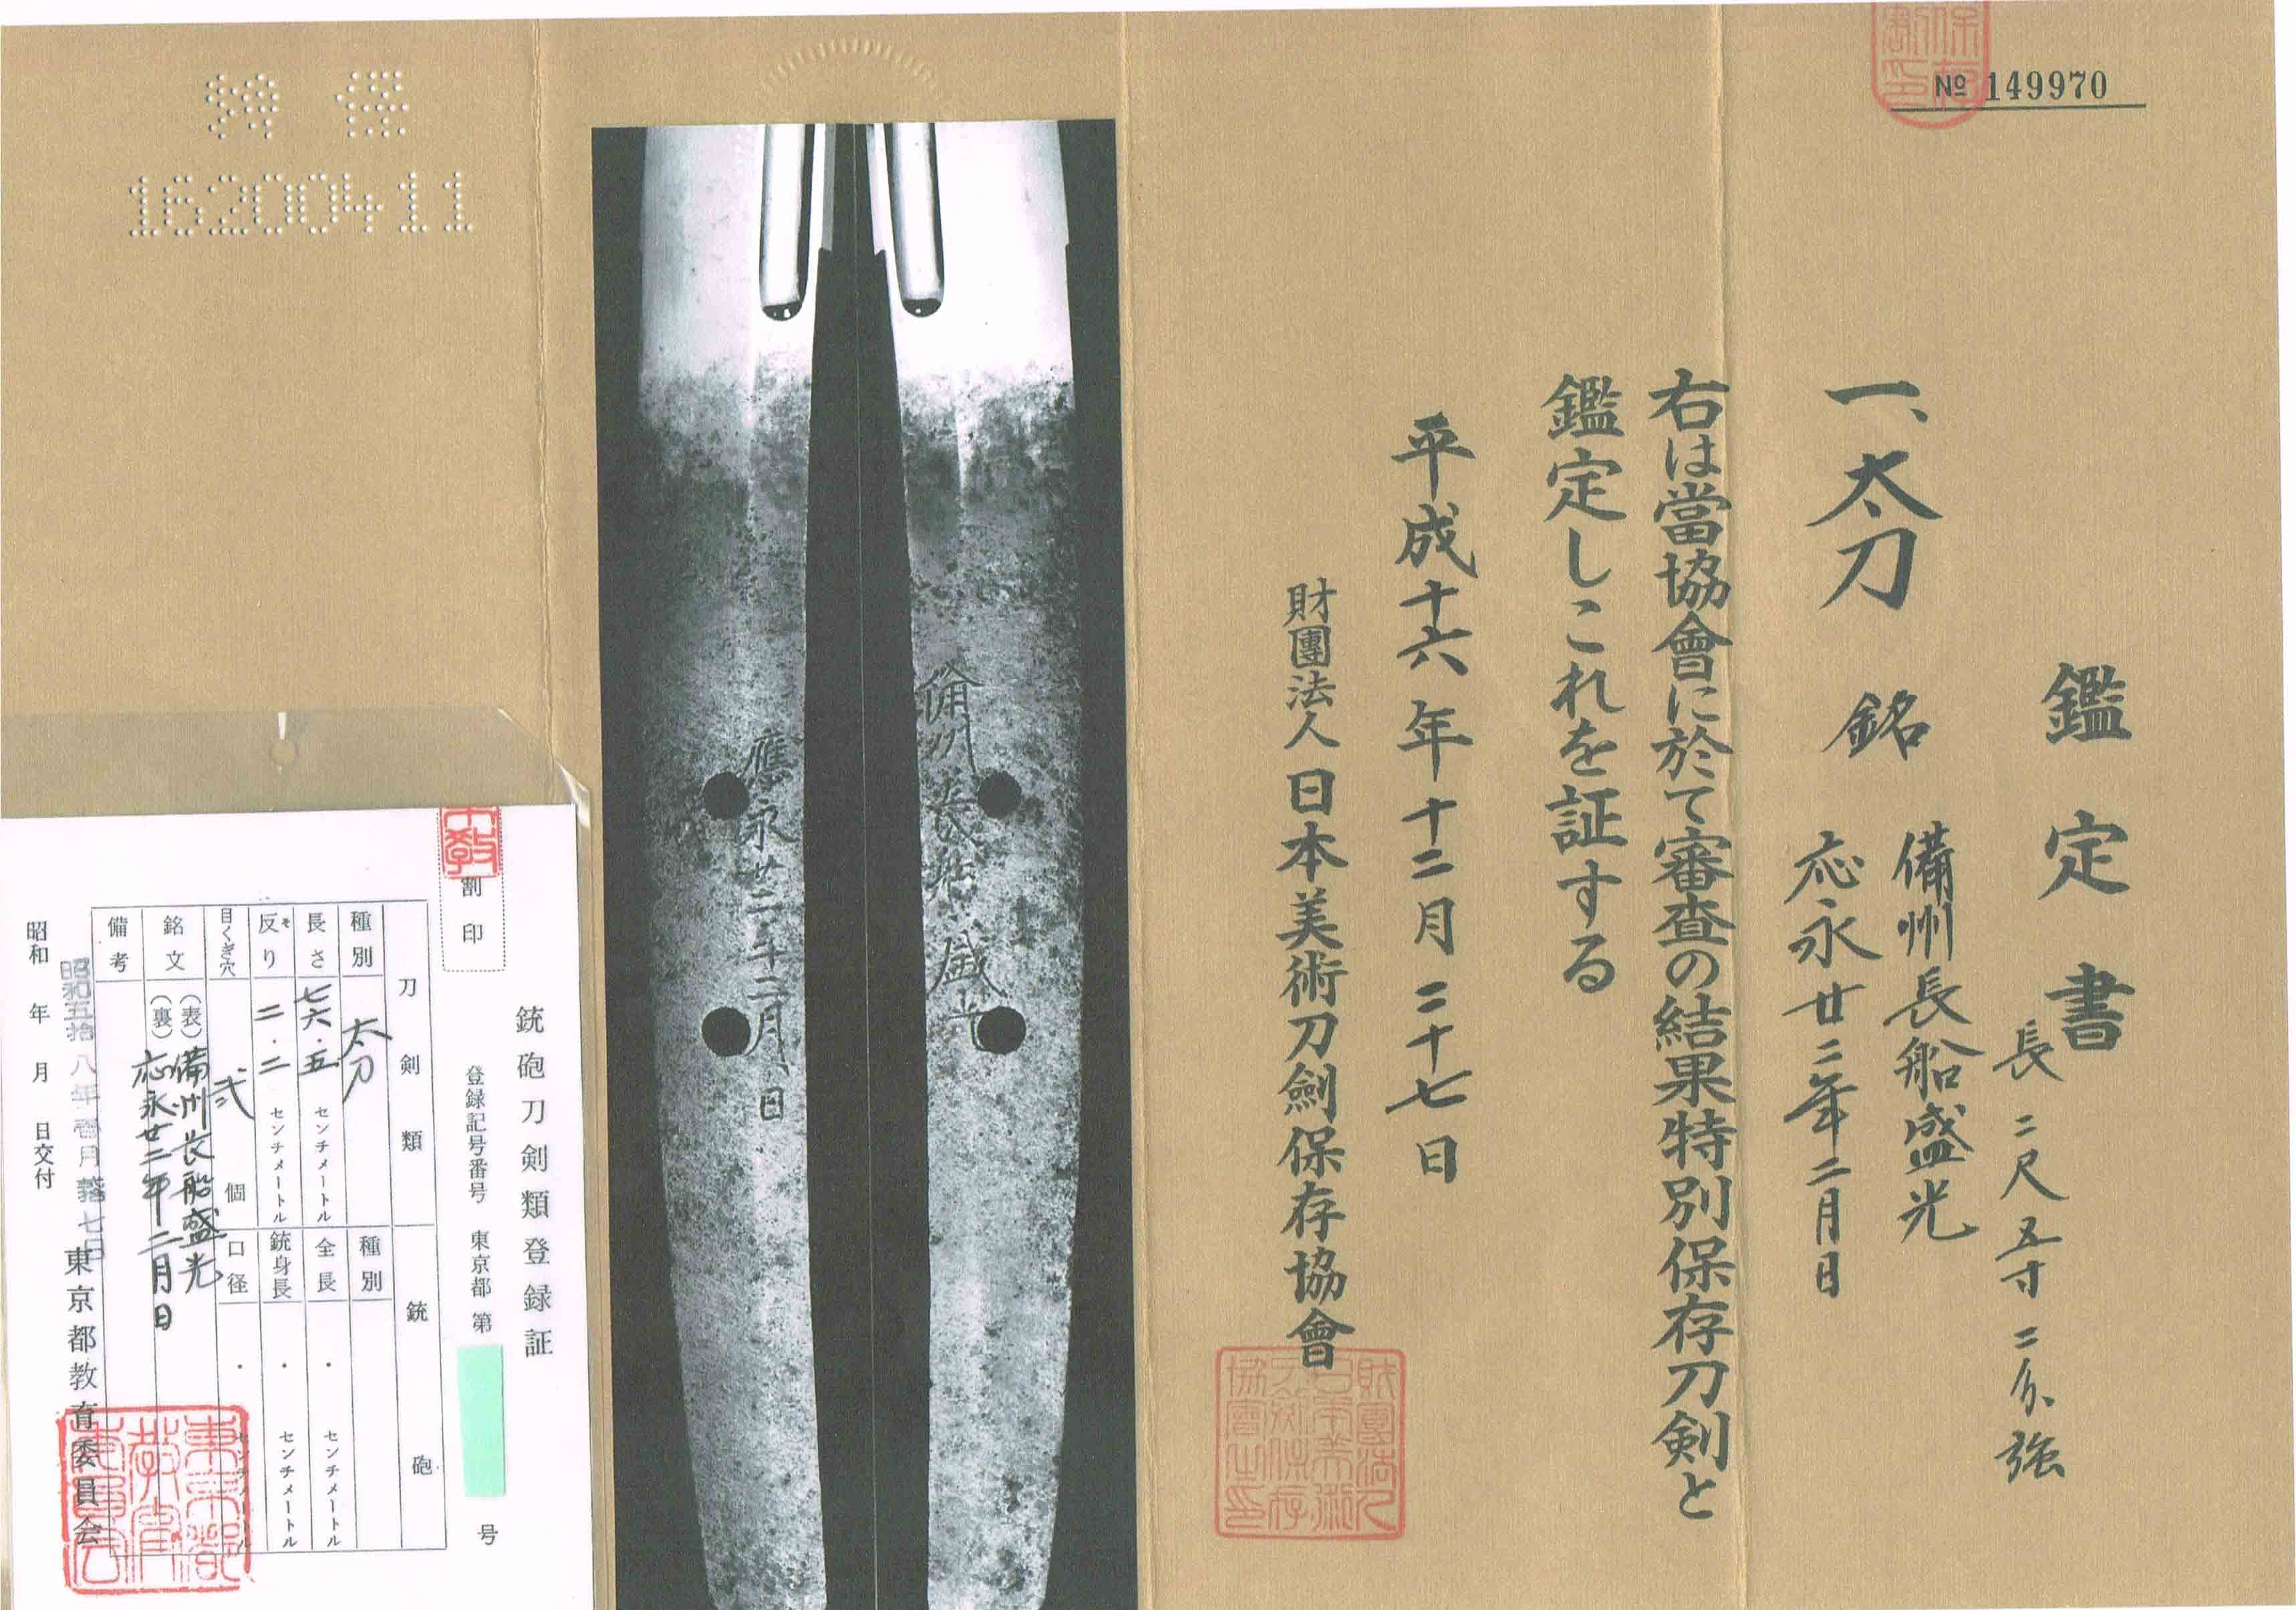 № 149970
鑑定書
長 二尺五寸二分強
一、太刀 銘 備州長船盛光
応永廿二年二月日
右は當協會に於て審査の結果特別保存刀剣と
鑑定しこれを証する
平成十六年十二月二十七日
財團法人日本美術刀劍保存協會
備州長船盛光
應永廿二年二月日
16200411
銃砲刀剣類登録証
割印
登録記号番号 東京都 第 号
刀剣類 銃砲
種別 太刀 種別
長さ 七六・五 センチメートル 全長 ・ センチメートル
反り 二・二 センチメートル 銃身長 ・ センチメートル
目くぎ穴 弐 個 口径 ・ センチメートル
銘文 (表) 備州長船盛光
(裏) 応永廿二年二月日
備考
昭和 年 月 日交付
東京都教育委員会